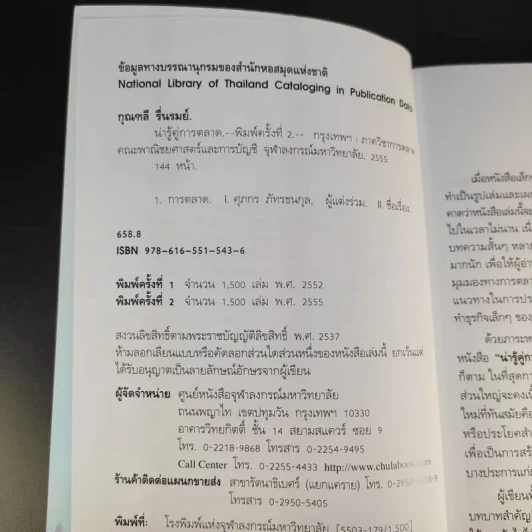 ข้อมูลทางบรรณานุกรมของสำนักหอสมุดแห่งชาติ
National Library of Thailand Cataloging in Publication Data
กุณฑลี รื่นรมย์.
น่ารู้คู่การตลาด.--พิมพ์ครั้งที่ 2.-- กรุงเทพฯ : ภาควิชาการตลาด
คณะพาณิชยศาสตร์และการบัญชี จุฬาลงกรณ์มหาวิทยาลัย, 2555.
144 หน้า.
1. การตลาด. I. ศุภกร ภัทรธนกุล, ผู้แต่งร่วม. II. ชื่อเรื่อง.
658.8
ISBN 978-616-551-543-6
พิมพ์ครั้งที่ 1 จำนวน 1,500 เล่ม พ.ศ. 2552
พิมพ์ครั้งที่ 2 จำนวน 1,500 เล่ม พ.ศ. 2555
สงวนลิขสิทธิ์ตามพระราชบัญญัติลิขสิทธิ์ พ.ศ. 2537
ห้ามลอกเลียนแบบหรือคัดลอกส่วนใดส่วนหนึ่งของหนังสือเล่มนี้ ยกเว้นแต่
ได้รับอนุญาตเป็นลายลักษณ์อักษรจากผู้เขียน
ผู้จัดจำหน่าย ศูนย์หนังสือจุฬาลงกรณ์มหาวิทยาลัย
ถนนพญาไท เขตปทุมวัน กรุงเทพฯ 10330
อาคารวิทยกิตติ์ ชั้น 14 สยามสแควร์ ซอย 9
โทร. 0-2218-9868 โทรสาร 0-2254-9495
Call Center โทร. 0-2255-4433 http://www.chulabook.com
ร้านค้าติดต่อแผนกขายส่ง สาขารัตนาธิเบศร์ (แยกแคราย) โทร.
โทรสาร 0-2950-5405
พิมพ์ที่: โรงพิมพ์แห่งจุฬาลงกรณ์มหาวิทยาลัย [5503-179/1,500]
เมื่อหนังสือเล็กๆ
ทำเป็นรูปเล่มและเผย
คาดว่าหนังสือเล่มนี้จะ
ไปในเวลาไม่นาน
บทความสั้นๆ หลาย
มากนัก เพื่อให้ผู้อ่าน
มุมมองทางการตลาด
แนวทางในการประ
ทำธุรกิจเล็กๆ ของ
ด้วยภาระห
หนังสือ "น่ารู้คู่การ
ก็ตาม ในที่สุดการ
ส่วนใหญ่จะคงเนื้
ใหม่ที่ทันสมัย
หรือประโยชน์
เพื่อเป็นการ
บางประการ
ผู้เขียน
บทบาทสำคัญ